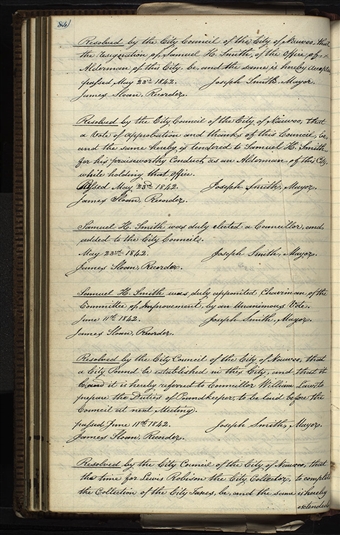 Resolved by the City Council of the City of Nauvoo, that
the resignation of Samuel H. Smith, of the Office of
Alderman, of this City, be, and the same is hereby accepted
passed May 23rd 1842. Joseph Smith, Mayor.
James Sloan, Recorder.
Resolved by the City Council of the City of Nauvoo, that
a Vote of approbation and thanks of this Council, be
and the same hereby is tendered to Samuel H. Smith,
for his praiseworthy Conduct, as an Alderman, of this City,
while holding that Office.
Passed May 23rd 1842. Joseph Smith, Mayor.
James Sloan, Recorder.
Samuel H. Smith was duly elected a Councillor, and
added to the City Council.
May 23rd 1842. Joseph Smith, Mayor.
James Sloan, Recorder.
Samuel H. Smith was duly appointed Chairman of the
Committee of Improvement, by an Unanimous Vote.
June 11th 1842. Joseph Smith, Mayor.
James Sloan, Recorder.
Resolved by the City Council of the City of Nauvoo, that
a City Pound be established in this City, and that it
and it is hereby referred to Councillor William Law to
prepare the Duties of Poundkeeper, to be laid before the
Council at next Meeting.
passed June 11th 1842. Joseph Smith, Mayor.
James Sloan, Recorder.
Resolved by the City Council of the City of Nauvoo, that
the time for Lewis Robison the City Collector, to complete
the Collection of the City Taxes, be, and the same is hereby
extended